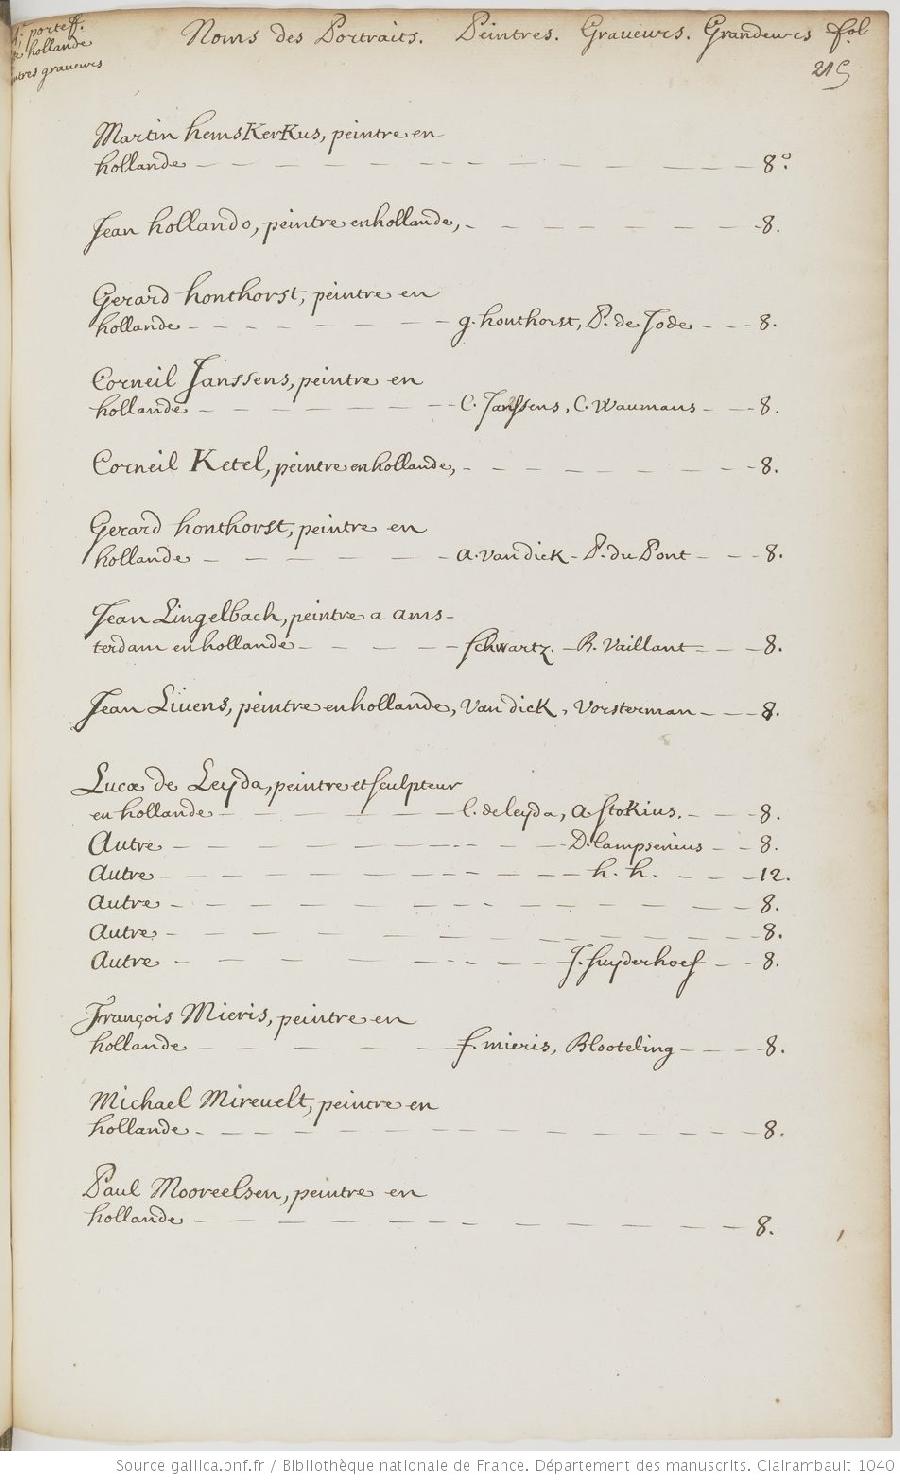 porteff.
hollande
graveurs
Noms des Portraits. Peintres. Graveurs. Grandeurs fol.
215
Martin hemsKerKus, peintre en
hollande - - - - - - - - 8º.
Jean hollando, peintre en hollande, - - - - - - 8.
Gerard honthorst, peintre en
hollande - - - - - g. honthorst, P. de Jode - - 8.
Corneil Janssens, peintre en
hollande - - - - - C. Janssens, C. Waumans - - 8.
Corneil Ketel, peintre en hollande, - - - - - - 8.
Gerard honthorst, peintre en
hollande - - - - - a. van dick - P. du Pont - - 8.
Jean Lingelbach, peintre a ams-
terdam en hollande - - - - schwartz. - R. Vaillant - - 8.
Jean Liuens, peintre en hollande, van dick, vorsterman - - 8.
Lucæ de Leyda, peintre et sculpteur
en hollande - - - - l. de leyda, a stokius. - - 8.
Autre - - - - - - D. lampsenius - - 8.
Autre - - - - - - h. h. - - - 12.
Autre - - - - - - - - - 8.
Autre - - - - - - - - - 8.
Autre - - - - - - J. suyderhoef - - 8.
François Mieris, peintre en
hollande - - - - f. mieris, Blooteling - - - 8.
Michael Mireuelt, peintre en
hollande - - - - - - - - - 8.
Paul Mooreelsen, peintre en
hollande - - - - - - - - - 8.
Source gallica.bnf.fr / Bibliothèque nationale de France. Département des manuscrits. Clairambault 1040